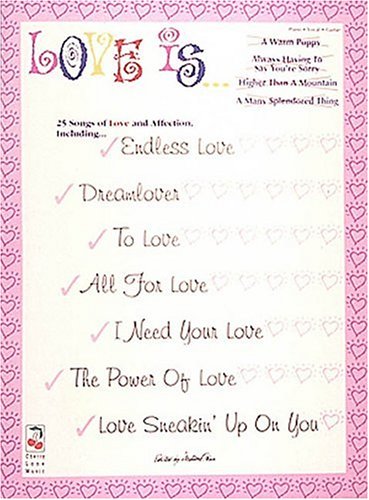 Piano • Vocal • Guitar
LOVE IS...
A Warm Puppy
Always Having To
Say You're Sorry
Higher Than A Mountain
A Many Splendored Thing
25 Songs of Love and Affection,
Including...
Endless Love
Dreamlover
To Love
All For Love
I Need Your Love
The Power Of Love
Love Sneakin' Up On You
Edited by
Cherry
Lane
Music